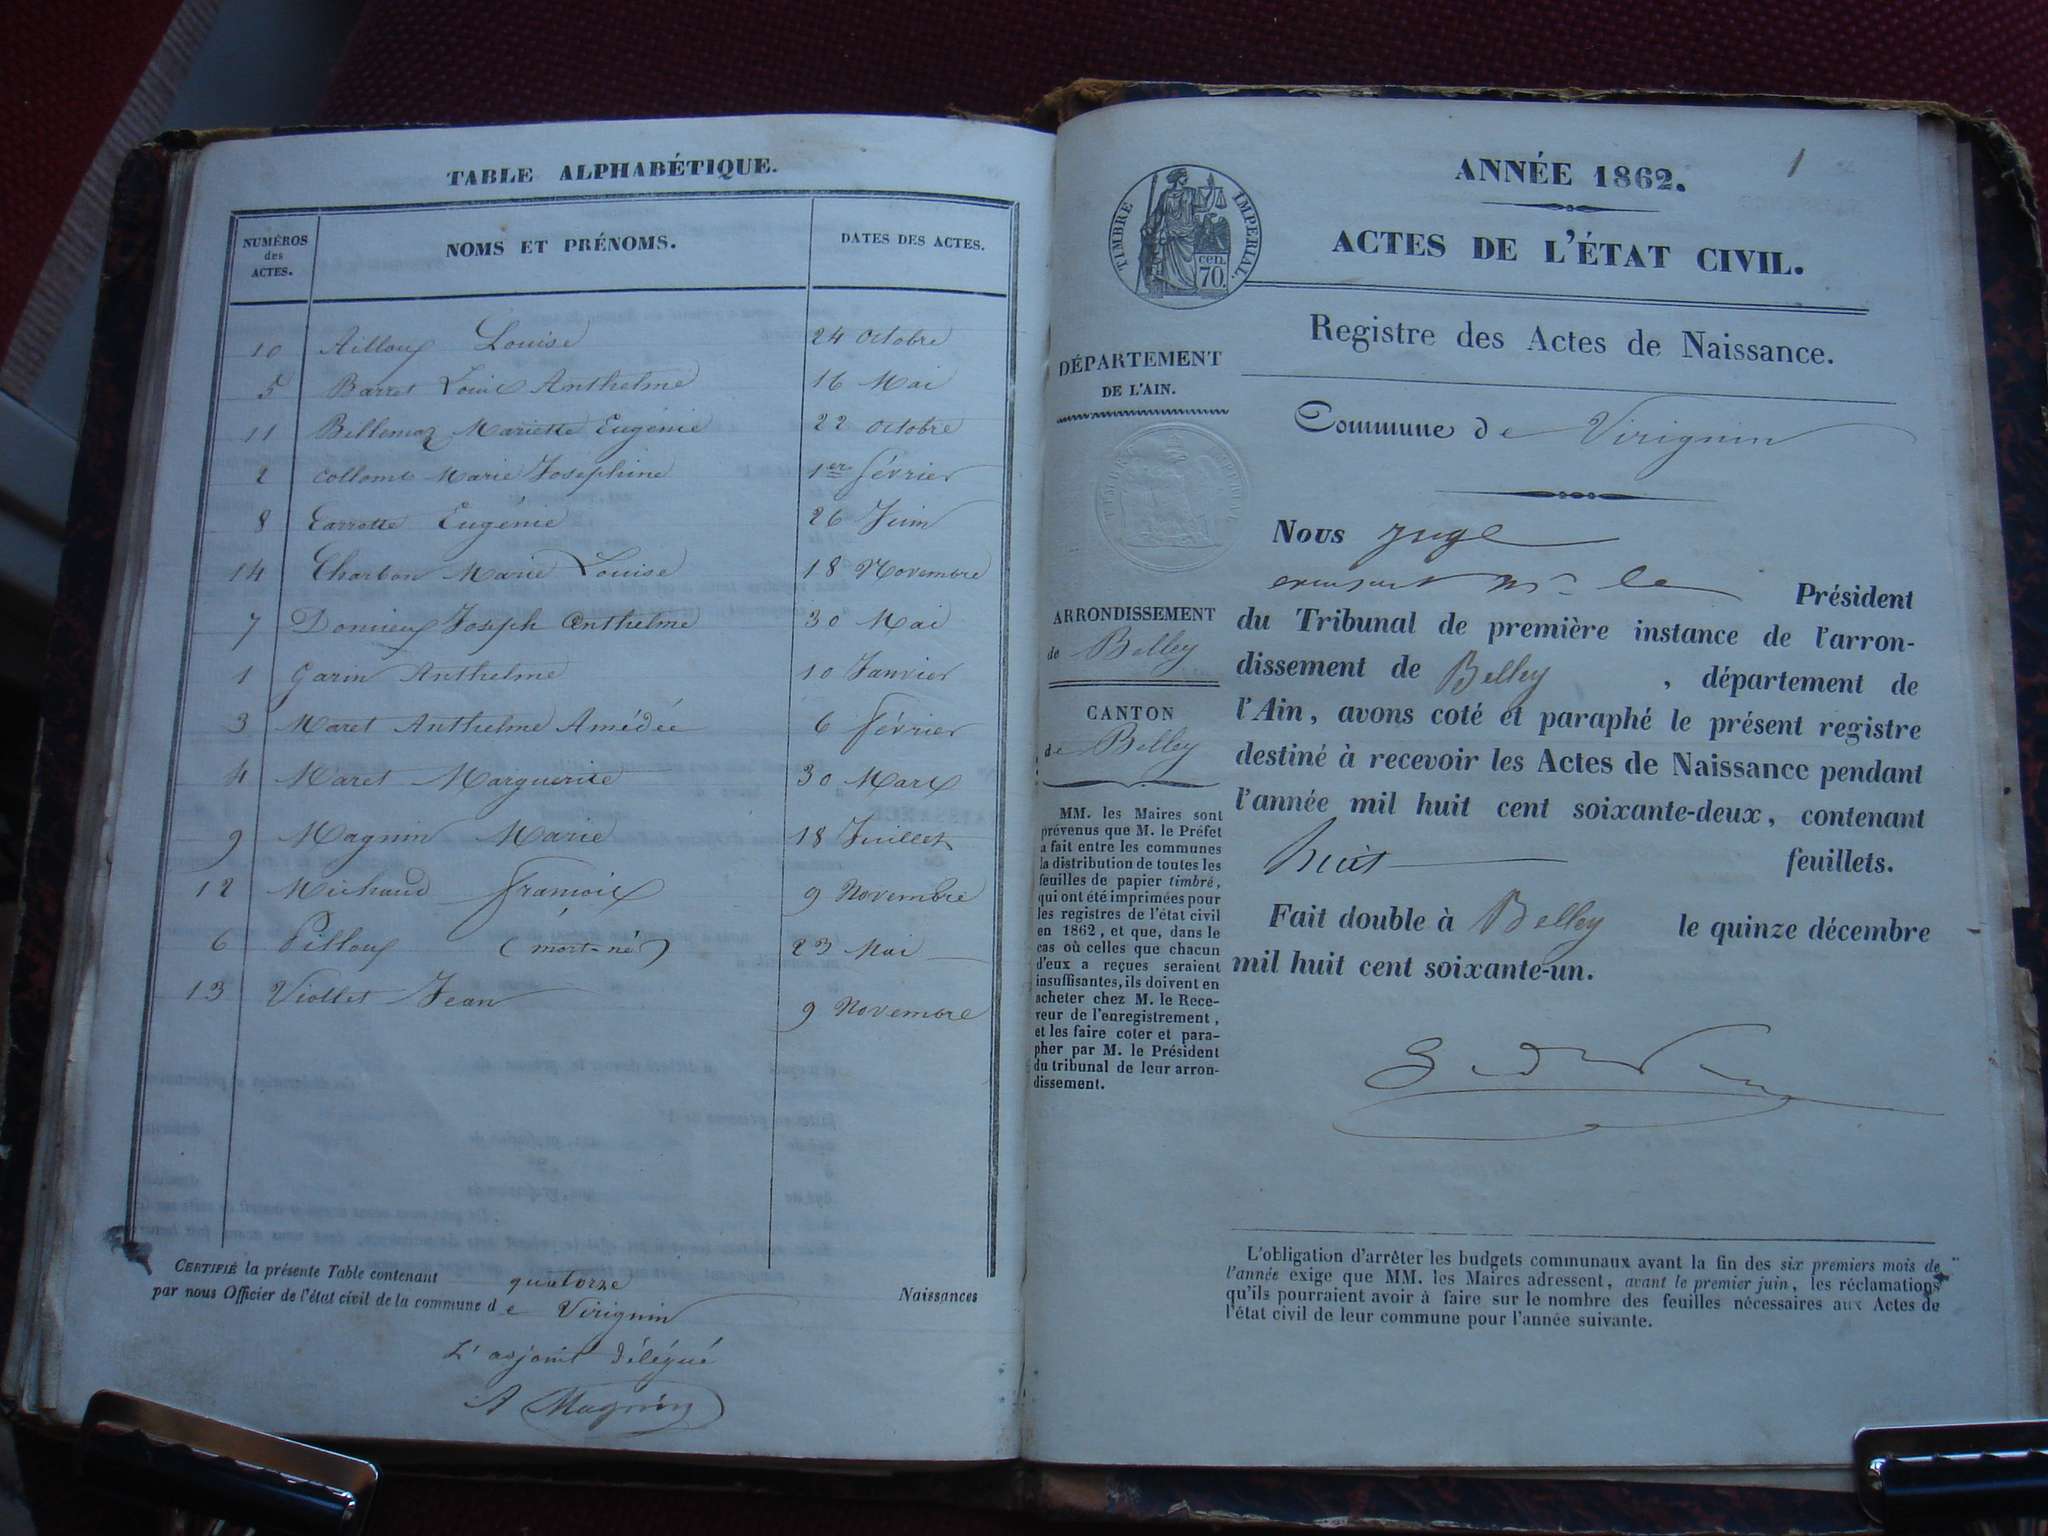 TABLE ALPHABÉTIQUE.
NUMÉROS des ACTES. NOMS ET PRÉNOMS. DATES DES ACTES.
10 Ailloux Louise 24 octobre
5 Barret Louis Anthelme 16 Mai
11 Bellemaz Mariette Eugénie 22 octobre
2 Collomb Marie Josephine 1er février
8 Carrotte Eugénie 26 Juin
14 Charbon Marie Louise 18 Novembre
7 Joseph Anthelme 30 Mai
1 Garin Anthelme 10 Janvier
3 Maret Anthelme Amédée 6 février
4 Maret Marguerite 30 Mars
9 Magnin Marie 18 Juillet
12 Michaud françois 9 Novembre
6 Pilloux (mort-né) 23 Mai
13 Viollet Jean 9 Novembre
CERTIFIÉ la présente Table contenant quatorze Naissances
par nous Officier de l'état civil de la commune de Virignin
L'adjoint délégué
A Magnin
1
ANNÉE 1862.
TIMBRE IMPÉRIAL.
cen. 70.
ACTES DE L'ÉTAT CIVIL.
Registre des Actes de Naissance.
DÉPARTEMENT
DE L'AIN.
Commune de Virignin
TIMBRE IMPÉRIAL
ARRONDISSEMENT
de Belley
CANTON
de Belley
MM. les Maires sont
prévenus que M. le Préfet
a fait entre les communes
la distribution de toutes les
feuilles de papier timbré,
qui ont été imprimées pour
les registres de l'état civil
en 1862, et que, dans le
cas où celles que chacun
d'eux a reçues seraient
insuffisantes, ils doivent en
acheter chez M. le Rece-
veur de l'enregistrement,
et les faire coter et para-
pher par M. le Président
du tribunal de leur arron-
dissement.
Nous juge
Mr le Président
du Tribunal de première instance de l'arron-
dissement de Belley, département de
l'Ain, avons coté et paraphé le présent registre
destiné à recevoir les Actes de Naissance pendant
l'année mil huit cent soixante-deux, contenant
huit feuillets.
Fait double à Belley le quinze décembre
mil huit cent soixante-un.
L'obligation d'arrêter les budgets communaux avant la fin des six premiers mois de
l'année exige que MM. les Maires adressent, avant le premier juin, les réclamations
qu'ils pourraient avoir à faire sur le nombre des feuilles nécessaires aux Actes de
l'état civil de leur commune pour l'année suivante.